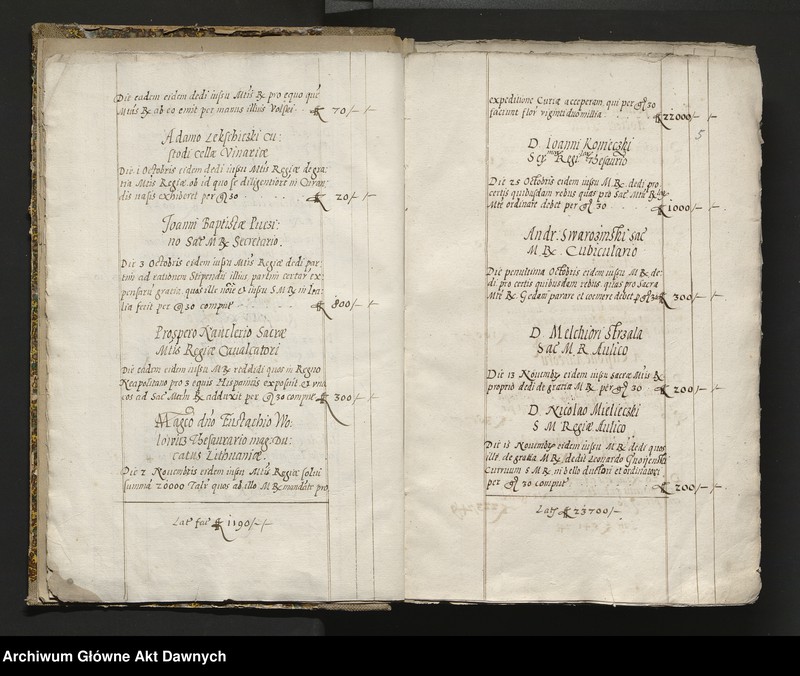 Die eadem eidem dedi iussu Mtis R pro equo quē
Mtas R ab eo emit per manus illius Volssei fl 70/-/-
Adamo Lekschiczki Cu:
stodi cellæ Vinariæ
Die 1 Octobris eidem dedi iussu Mtis Regiæ de gra:
tia Mtis Regiæ ob id quo se diligentiorē in
dis vasis exhiberet per gr 30 fl 20/-/-
Joanni Baptistæ
no Sac M R Secretario.
Die 3 Octobris eidem iussu Mtis Regiæ dedi par:
tim ad rationem Stipendii illius partim certar ex:
pensarū gratia, quas ille noīe et iussu S M R in Ita:
lia fecit per gr 30 compute fl 800/-/-
Prospero Sacræ
Mtis Regiæ Caualcatori
Die eadem eidem iussu M R reddidi quos in Regno
Neapolitano pro 3 equis Hispanicis exposuit et
cos ad Sac Mtem R adduxit per gr 30 compute fl 300/-/-
Magco dno Eustachio Wo:
lowicz Thesaurario mag: Du:
catus Lithuaniæ.
Die 2 Nouembris eidem iussu Mtis Regiæ solui
summā 20000 Talr quos ab illo M R mandāte pro
Lats fac fl 1190/-/-
expeditione Curiæ acceperam, qui per gr 30
faciunt flor viginti duo millia fl 22000/-/-
5
D. Ioanni Konieczki
Sermæ Regilæ Thesaurio
Die 25 Octobris eidem iussu M R. dedi pro
certis quibusdam rebus quas pro Sac Mtā R
Mte ordinare debet per gr 30 fl 1000/-/-
Andr. Swarozinski sac
M R. Cubiculario
Die penultima Octobris eidem iussu M R de:
di pro certis quibusdam rebus, quas pro Sacra
Mte R Gedani parare et coemere debet p gr 30 fl 300/-/-
D Melchiori Strzala
Sac M R Aulico
Die 13 Nouemb eidem iussu sacræ Mtis R
proprio dedi de gratia M R per gr 30 fl 200/-/-
D. Nicolao Mielieczki
S M Regiæ Aulico
Die 15 Nouemb eidem iussu M R dedi quos
ille de gratia M R dedit Leonardo
Curruum S M R in bello ductori et ordinatori
per gr 30 compute fl 200/-/-
Lats fl 23700/-
Archiwum Główne Akt Dawnych